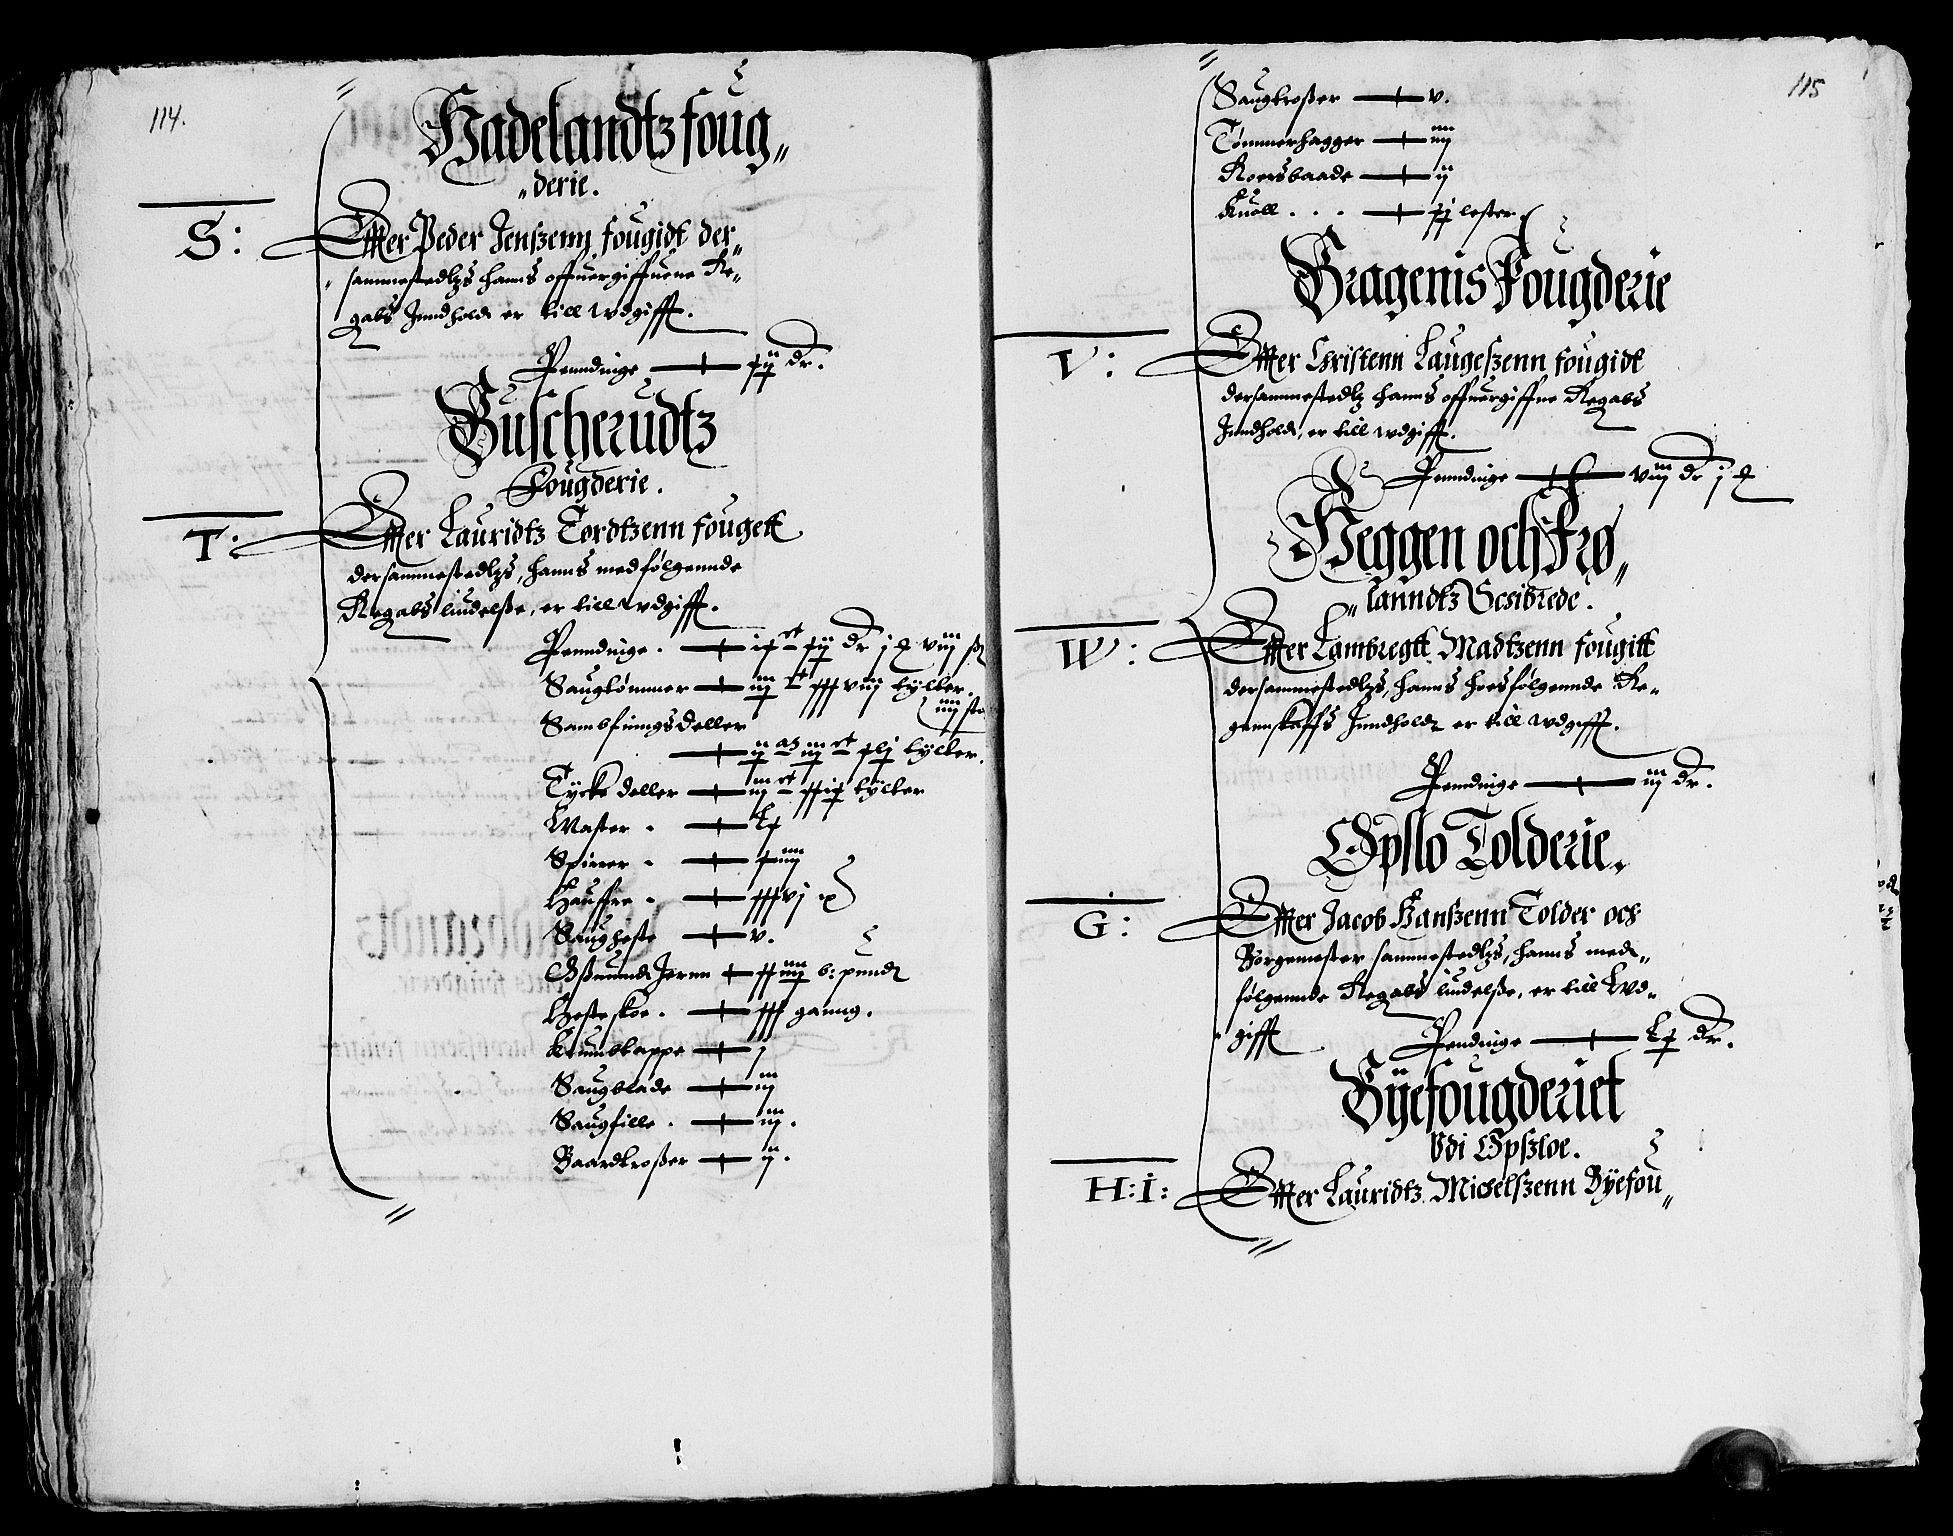 114.
Hadelandtz foug„
„derie.
S:
Effter Peder Jenszenn fougidt der„
„sammestedtzs hanns offuergiffuene Re„
gabs Inndholdt er till wdgifft.
Penndinge — xij dr.
Buscherudtz
Fougderie.
T:
Effter Lauridtz Tordtzenn fougett
dersammestedtzs, hanns medfølgennde
Regabs liudelsze, er till wdgifft.
Penndinge. — dr j
Saugtømmer — tylter.
Sambfnings Deller
tylter.
Tycke deller — tylter
Master. —
Spirer. — xiiij
Hauffre. — xxxvj
Saugheste — v.
Oszmundt Jernn — xxiiij b: pundt
Hesteskoe. — xxx ganng.
Krumbkappe — j
Saugblade — iij
Saugfille. — iij.
Baardkroszer — ij.
115
Saugkroszer — v.
Tømmerhagger — iiij
Roersbaade — ij
Knoll . . . — lester
Bragenis Fougderie
V:
Effter Christenn Laugeszenn fougidt
dersammestedtz hanns offuergiffne Regabs
Inndholdt, er till wdgifft.
Penndinge — viij dr j
Heggen och Frø„
„lanndtz Gesibrede.
W:
Effter Lambregtt Madtzenn fougitt
dersammestedtzs, hanns hoesfølgennde Re„
gennskaffs Inndholdt er till wdgifft.
Penndinge — iij dr.
Opslo Tolderie.
G:
Effter Jacob Hanszenn Tolder och
Borgemester sammestedtzs, hanns med„
følgennde Regabs liudelsze, er till Wd„
„gifft
Pendinge — Lx dr.
Byefougderiet
Vdi Opszloe.
H:I:
Effter Lauridtz Michelszenn Byefou„